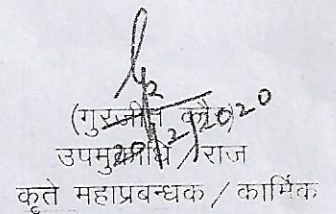 (गुरजीत कौर)
20/2/2020
उपमुकाधि / राज
कृते महाप्रबन्धक / कार्मिक